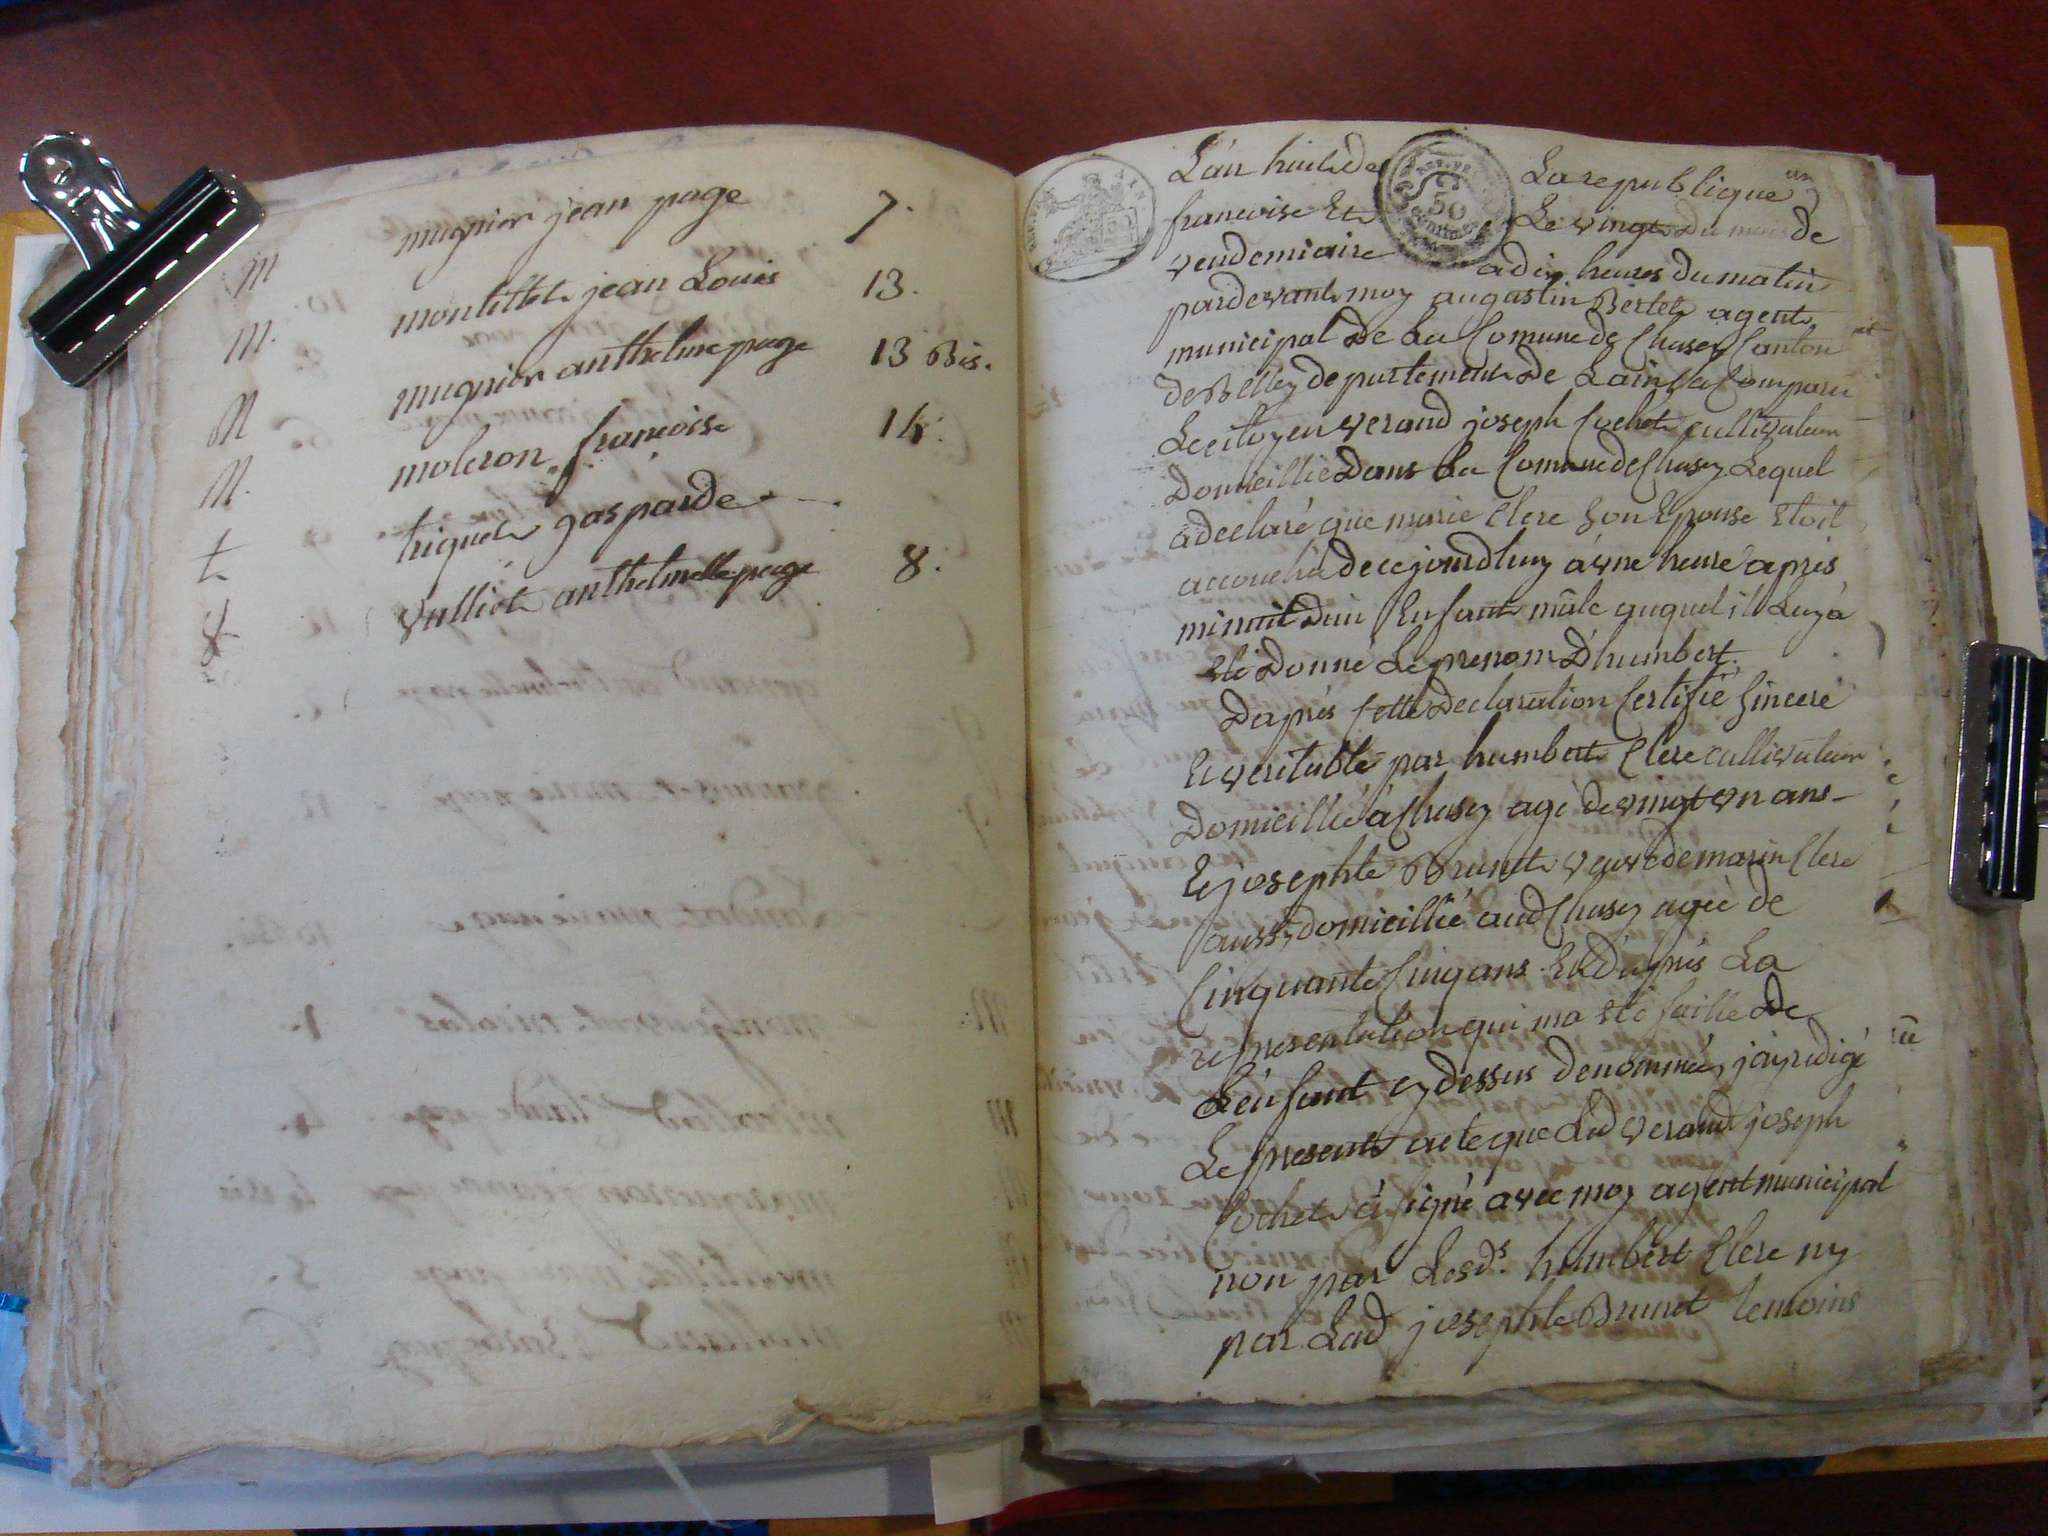 M mugnier jean page 7.
M. montillet jean Louis 13.
M mugnier anthelme page 13 Bis.
M. moleron francoise 14.
t. triquet gasparde
V vulliet anthelmette page 8.
L'an huit de La republique un
francoise Et Le vingt Du mois de
vendemiaire a dix heures du matin
pardevant moy augustin Bertet agent
municipal De La Comune de Chasey Canton
de Belley departement De Lain Est Comparu
Le citoyen verand joseph Cochet cullivateur
Domicillié Dans La Comune de Chasey Lequel
a declaré que marie Clere Son Epouse Etoit
accouchée de ce jourdhuy à une heure après
minuit Dun Enfant mâle auquel il Luy a
Eté Donné Le prenom D'humbert.
Daprès Cette Declaration Certifié Sincere
Et veritable par humbert Clere cullivateur
Domicillié à Chasey agé de vingt un ans
Et josephte Brunet veuve de marin Clere
aussy domicillié aud Chasey ageé de
Cinquante Cinq ans. Et D'après La
representation qui ma Eté faitte De
L'enfant cy dessus denommé, j'ay redigé
Le present acte que Led verand joseph
Cochet à signé avec moy agent municipal
non par Lesds. humbert Clere ny
par Lad josephte Brunet temoins
50
centimes